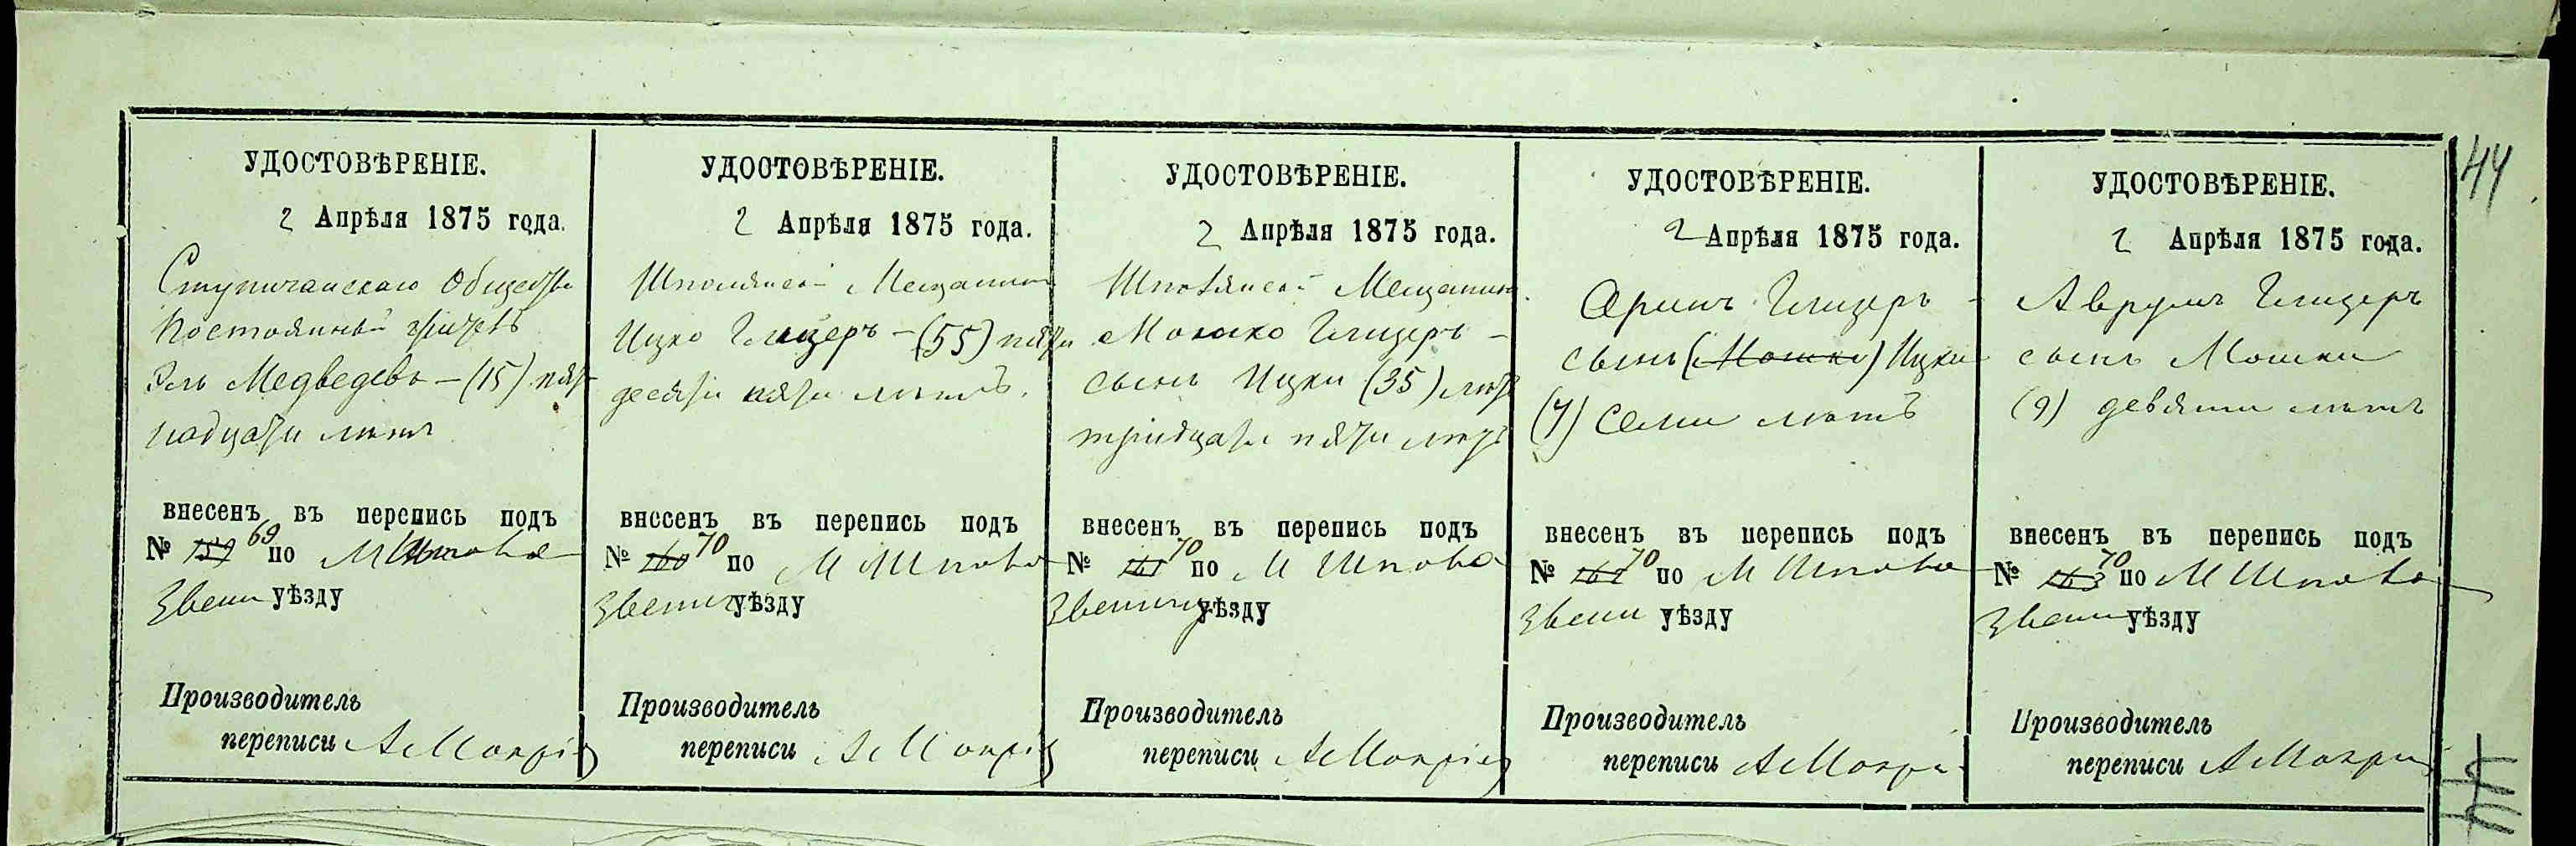 44
УДОСТОВѢРЕНІЕ.
2 Апрѣля 1875 года.
Ступичанскаго Общества
Постоянный житель
Медведевъ — (15) пят
надцати лѣтъ
внесенъ въ перепись подъ
№ 159 69 по М Шпола
Звени уѣзду
Производитель
переписи АМокрі
УДОСТОВѢРЕНІЕ.
2 Апрѣля 1875 года.
Шполянскій Мещанинъ
Ицко Глизеръ — (55) пяти
десяти пяти лѣтъ.
внесенъ въ перепись подъ
№ 160 70 по М Шпола
Звениг уѣзду
Производитель
переписи АМокрій
УДОСТОВѢРЕНІЕ.
2 Апрѣля 1875 года.
Шполянскій Мещанинъ
Мошко Глизеръ —
сынъ Ицки (35) лѣтъ
тридцати пяти лѣтъ
внесенъ въ перепись подъ
№ 161 70 по М Шпола
Звениг уѣзду
Производитель
переписи АМокрій
УДОСТОВѢРЕНІЕ.
2 Апрѣля 1875 года.
Глизеръ —
сынъ (Мошки) Ицки
(7) семи лѣтъ
внесенъ въ перепись подъ
№ 162 70 по М Шпола
Звени уѣзду
Производитель
переписи АМокрі
УДОСТОВѢРЕНІЕ.
2 Апрѣля 1875 года.
Аврумъ Глизеръ
сынъ Мошки
(9) девяти лѣтъ
внесенъ въ перепись подъ
№ 163 70 по М Шпола
Звени уѣзду
Производитель
переписи АМокрій
44